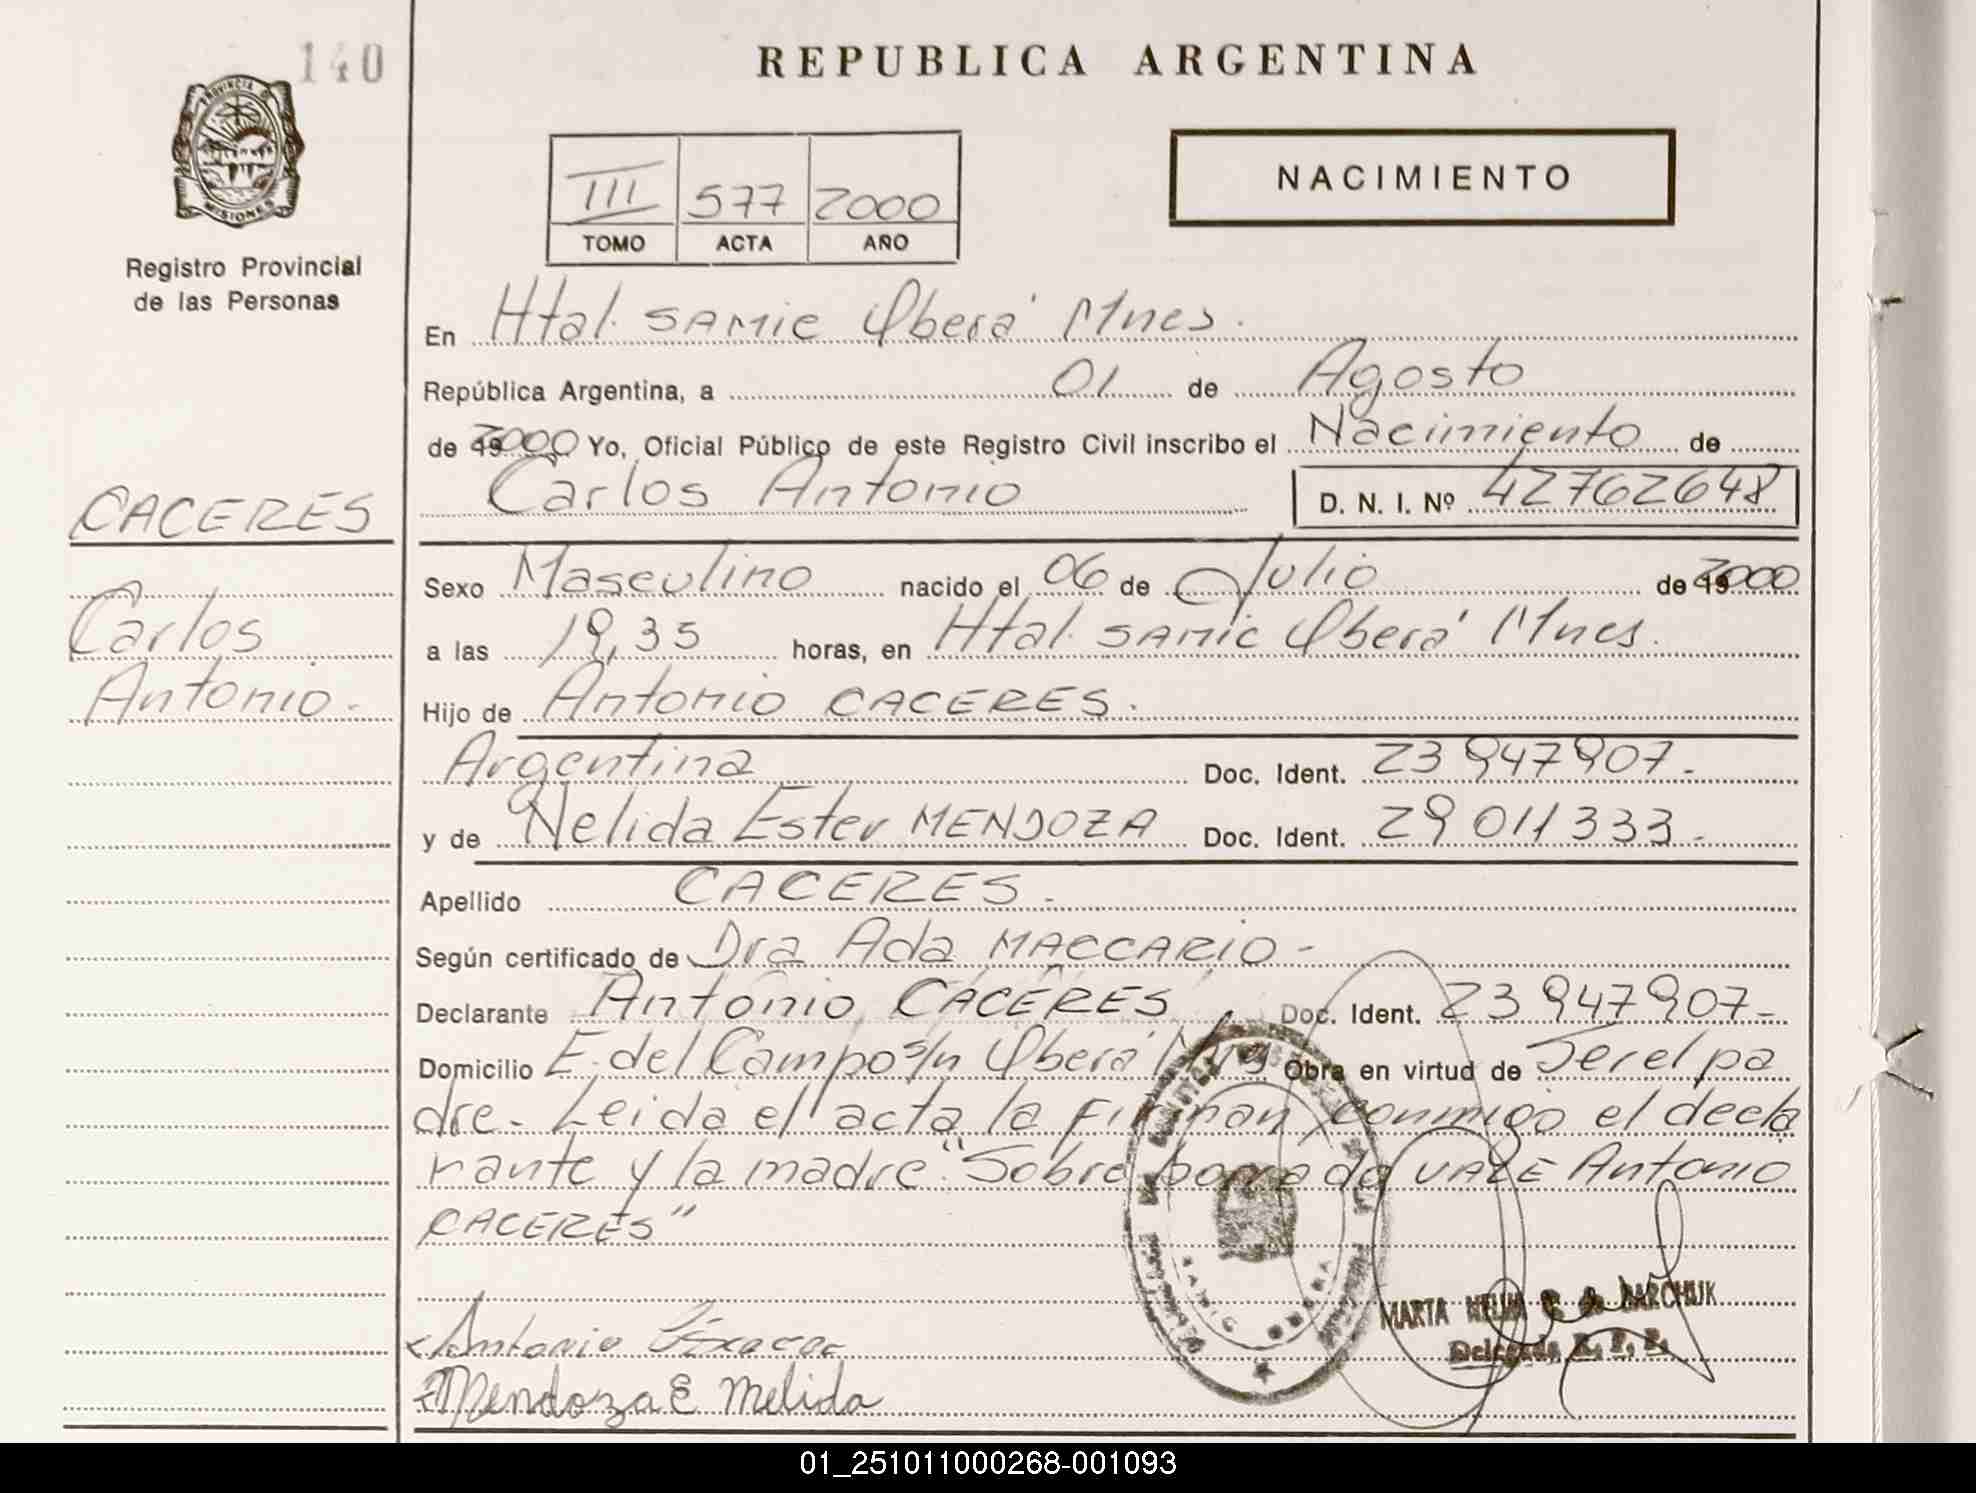 140
PROVINCIA DE
MISIONES
Registro Provincial
de las Personas
CACERES
Carlos
Antonio.
REPUBLICA ARGENTINA
III 577 2000
TOMO ACTA AÑO
NACIMIENTO
En Htal. SAMIC Oberá Mnes.
República Argentina, a 01 de Agosto
de 19 2000 Yo, Oficial Público de este Registro Civil inscribo el Nacimiento de
Carlos Antonio D. N. I. Nº 42762648
Sexo Masculino nacido el 06 de Julio de 19 2000
a las 19,35 horas, en Htal. SAMIC Oberá Mnes.
Hijo de Antonio CACERES.
Argentina Doc. Ident. 23947907.
y de Nelida Ester MENDOZA Doc. Ident. 29011333.
Apellido CACERES.
Según certificado de Dra Ada MACCARIO-
Declarante Antonio CACERES Doc. Ident. 23947907-
Domicilio E. del Campo s/n Oberá Mnes Obra en virtud de Ser el pa
dre- Leida el acta la firman conmigo el decla
rante y la madre "Sobre borrado VALE Antonio
CACERES"
MARTA C. de DARCHUK
Delegada R. P. P.
Antonio
Mendoza E Melida
01_251011000268-001093